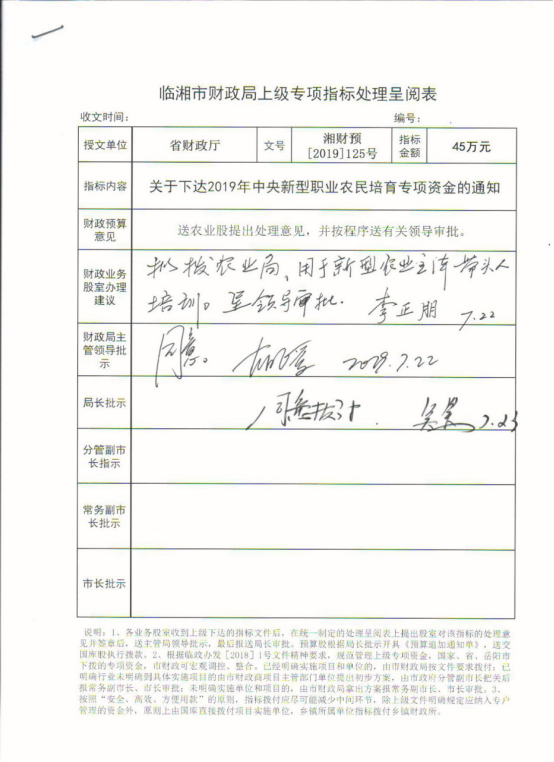 临湘市财政局上级专项指标处理呈阅表
收文时间： 编号：
授文单位 省财政厅 文号 湘财预[2019]125号 指标金额 45万元
指标内容 关于下达2019年中央新型职业农民培育专项资金的通知
财政预算意见 送农业股提出处理意见，并按程序送有关领导审批。
财政业务股室办理建议 拟拨农业局、用于新型农业主体带头人
培训。呈领导审批. 李正朋 7.22
财政局主管领导批示 同意。 2019.7.22
局长批示 同意拨付. 7.23
分管副市长指示
常务副市长批示
市长批示
说明：1、各业务股室收到上级下达的指标文件后，在统一制定的处理呈阅表上提出股室对该指标的处理意
见并签章后，送主管局领导批示，最后报送局长审批。预算股根据局长批示开具《预算追加通知单》，送交
国库股执行拨款。2、根据临政办发［2018］1号文件精神要求，规范管理上级专项资金，国家、省、岳阳市
下拨的专项资金，市财政可宏观调控、整合。已经明确实施项目和单位的，由市财政局按文件要求拨付；已
明确行业未明确到具体实施项目的由市财政商项目主管部门单位提出初步方案，由市政府分管副市长把关后
报常务副市长、市长审批；未明确实施单位和项目的，由市财政局拿出方案报常务副市长、市长审批。3、
按照“安全、高效、方便用款”的原则，指标拨付应尽可能减少中间环节，除上级文件明确规定应纳入专户
管理的资金外，原则上由国库直接拨付项目实施单位，乡镇所属单位指标拨付乡镇财政所。